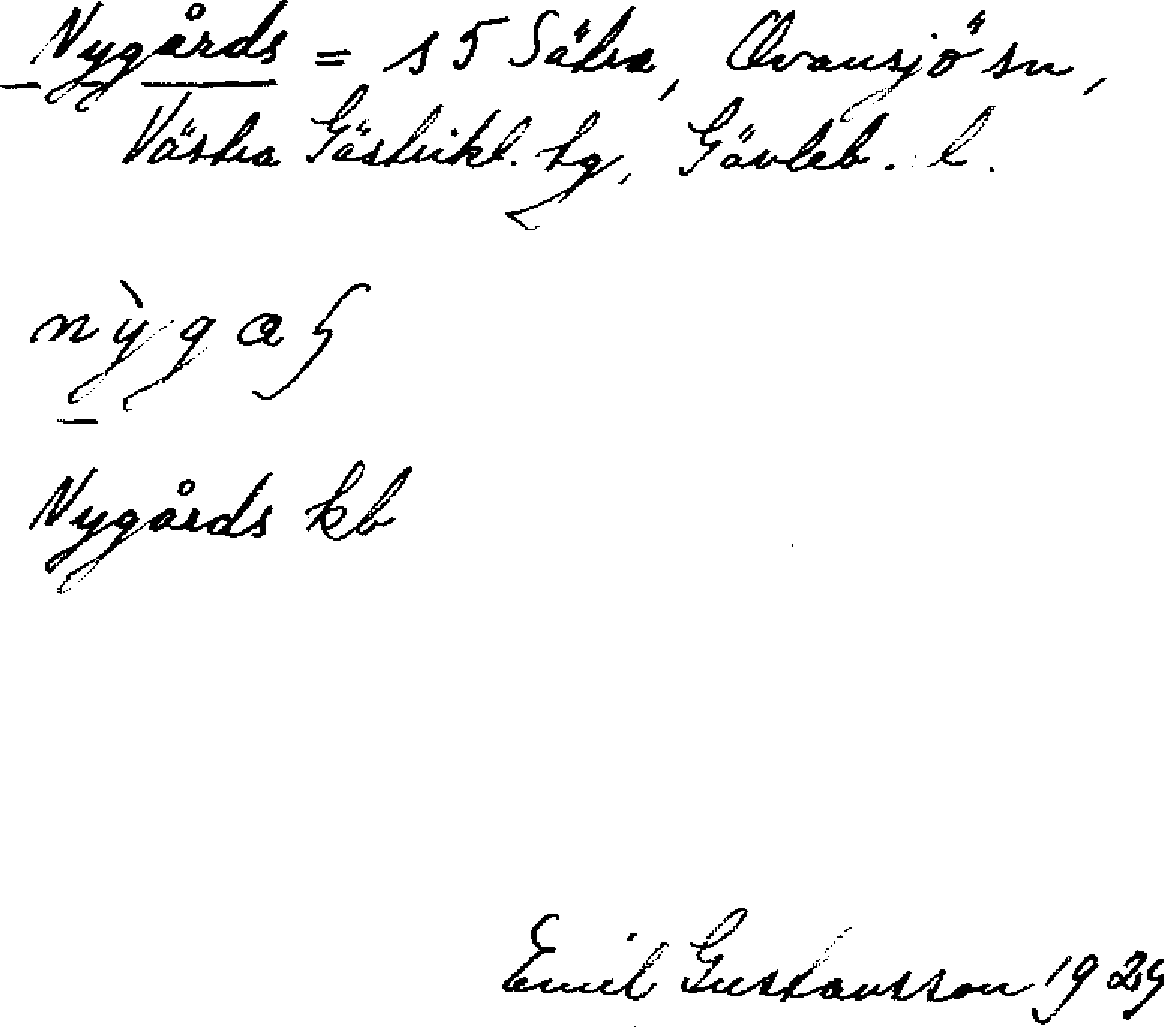 Nygårds = s 5 Sätra, Ovansjö sn,
Västra Gästrikl. tg, Gävleb. l.
nỳgaʂ
Nygårds kb
Emil Gustavsson 1929